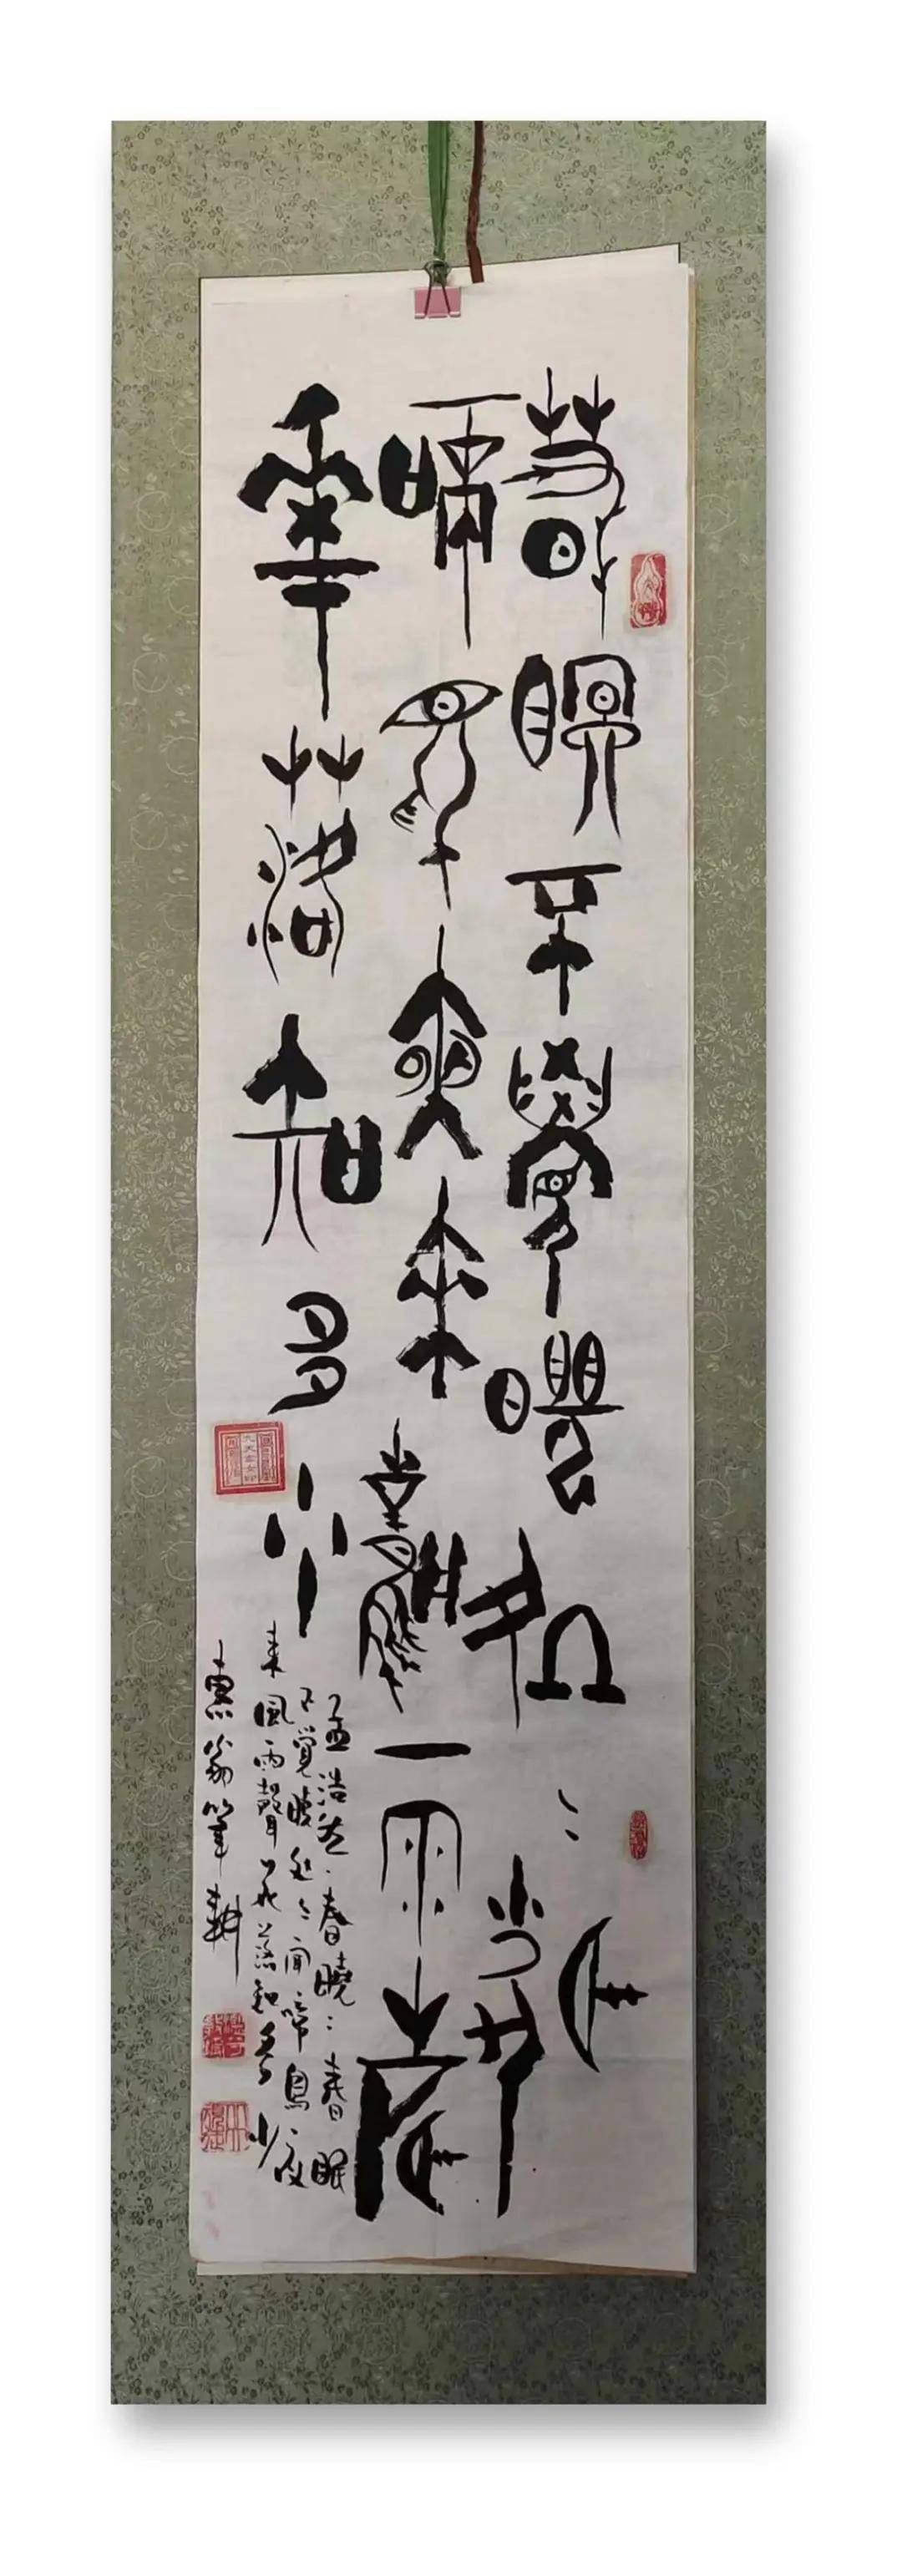 春眠不覺曉處〻聞
啼鳥夜來風雨聲
花落知多少
孟浩然·春曉：春眠
不覺曉處〻聞啼鳥夜
來風雨聲花落知多少
惠翁筆耕